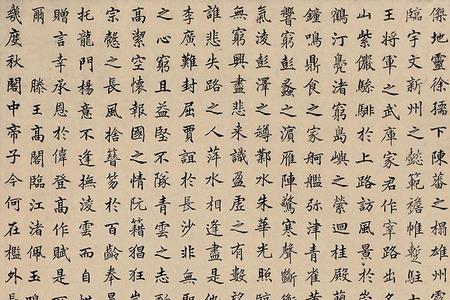 傑地靈徐孺下陳蕃之榻雄州霧
臨宇文新州之懿範襜帷暫駐十
王將軍之武庫家君作宰路出名
山紫儼驂騑於上路訪風景於崇
鶴汀鳧渚窮島嶼之縈迴桂殿蘭
鐘鳴鼎食之家舸艦彌津青雀
響窮彭蠡之濱雁陣驚寒聲斷衡
氣凌彭澤之樽鄴水朱華光照臨
無窮興盡悲來識盈虛之有數望
誰悲失路之人萍水相逢盡是他
李廣難封屈賈誼於長沙非無聖
之心窮且益堅不墜青雲之志酌
高潔空懷報國之情阮籍猖狂豈
宗愨之長風捨簪笏於百齡奉晨
托龍門楊意不逢撫凌雲而自惜
贈言幸承恩於偉登高作賦是所
爾 滕王高閣臨江渚佩玉鳴
幾度秋閣中帝子今何在檻外長